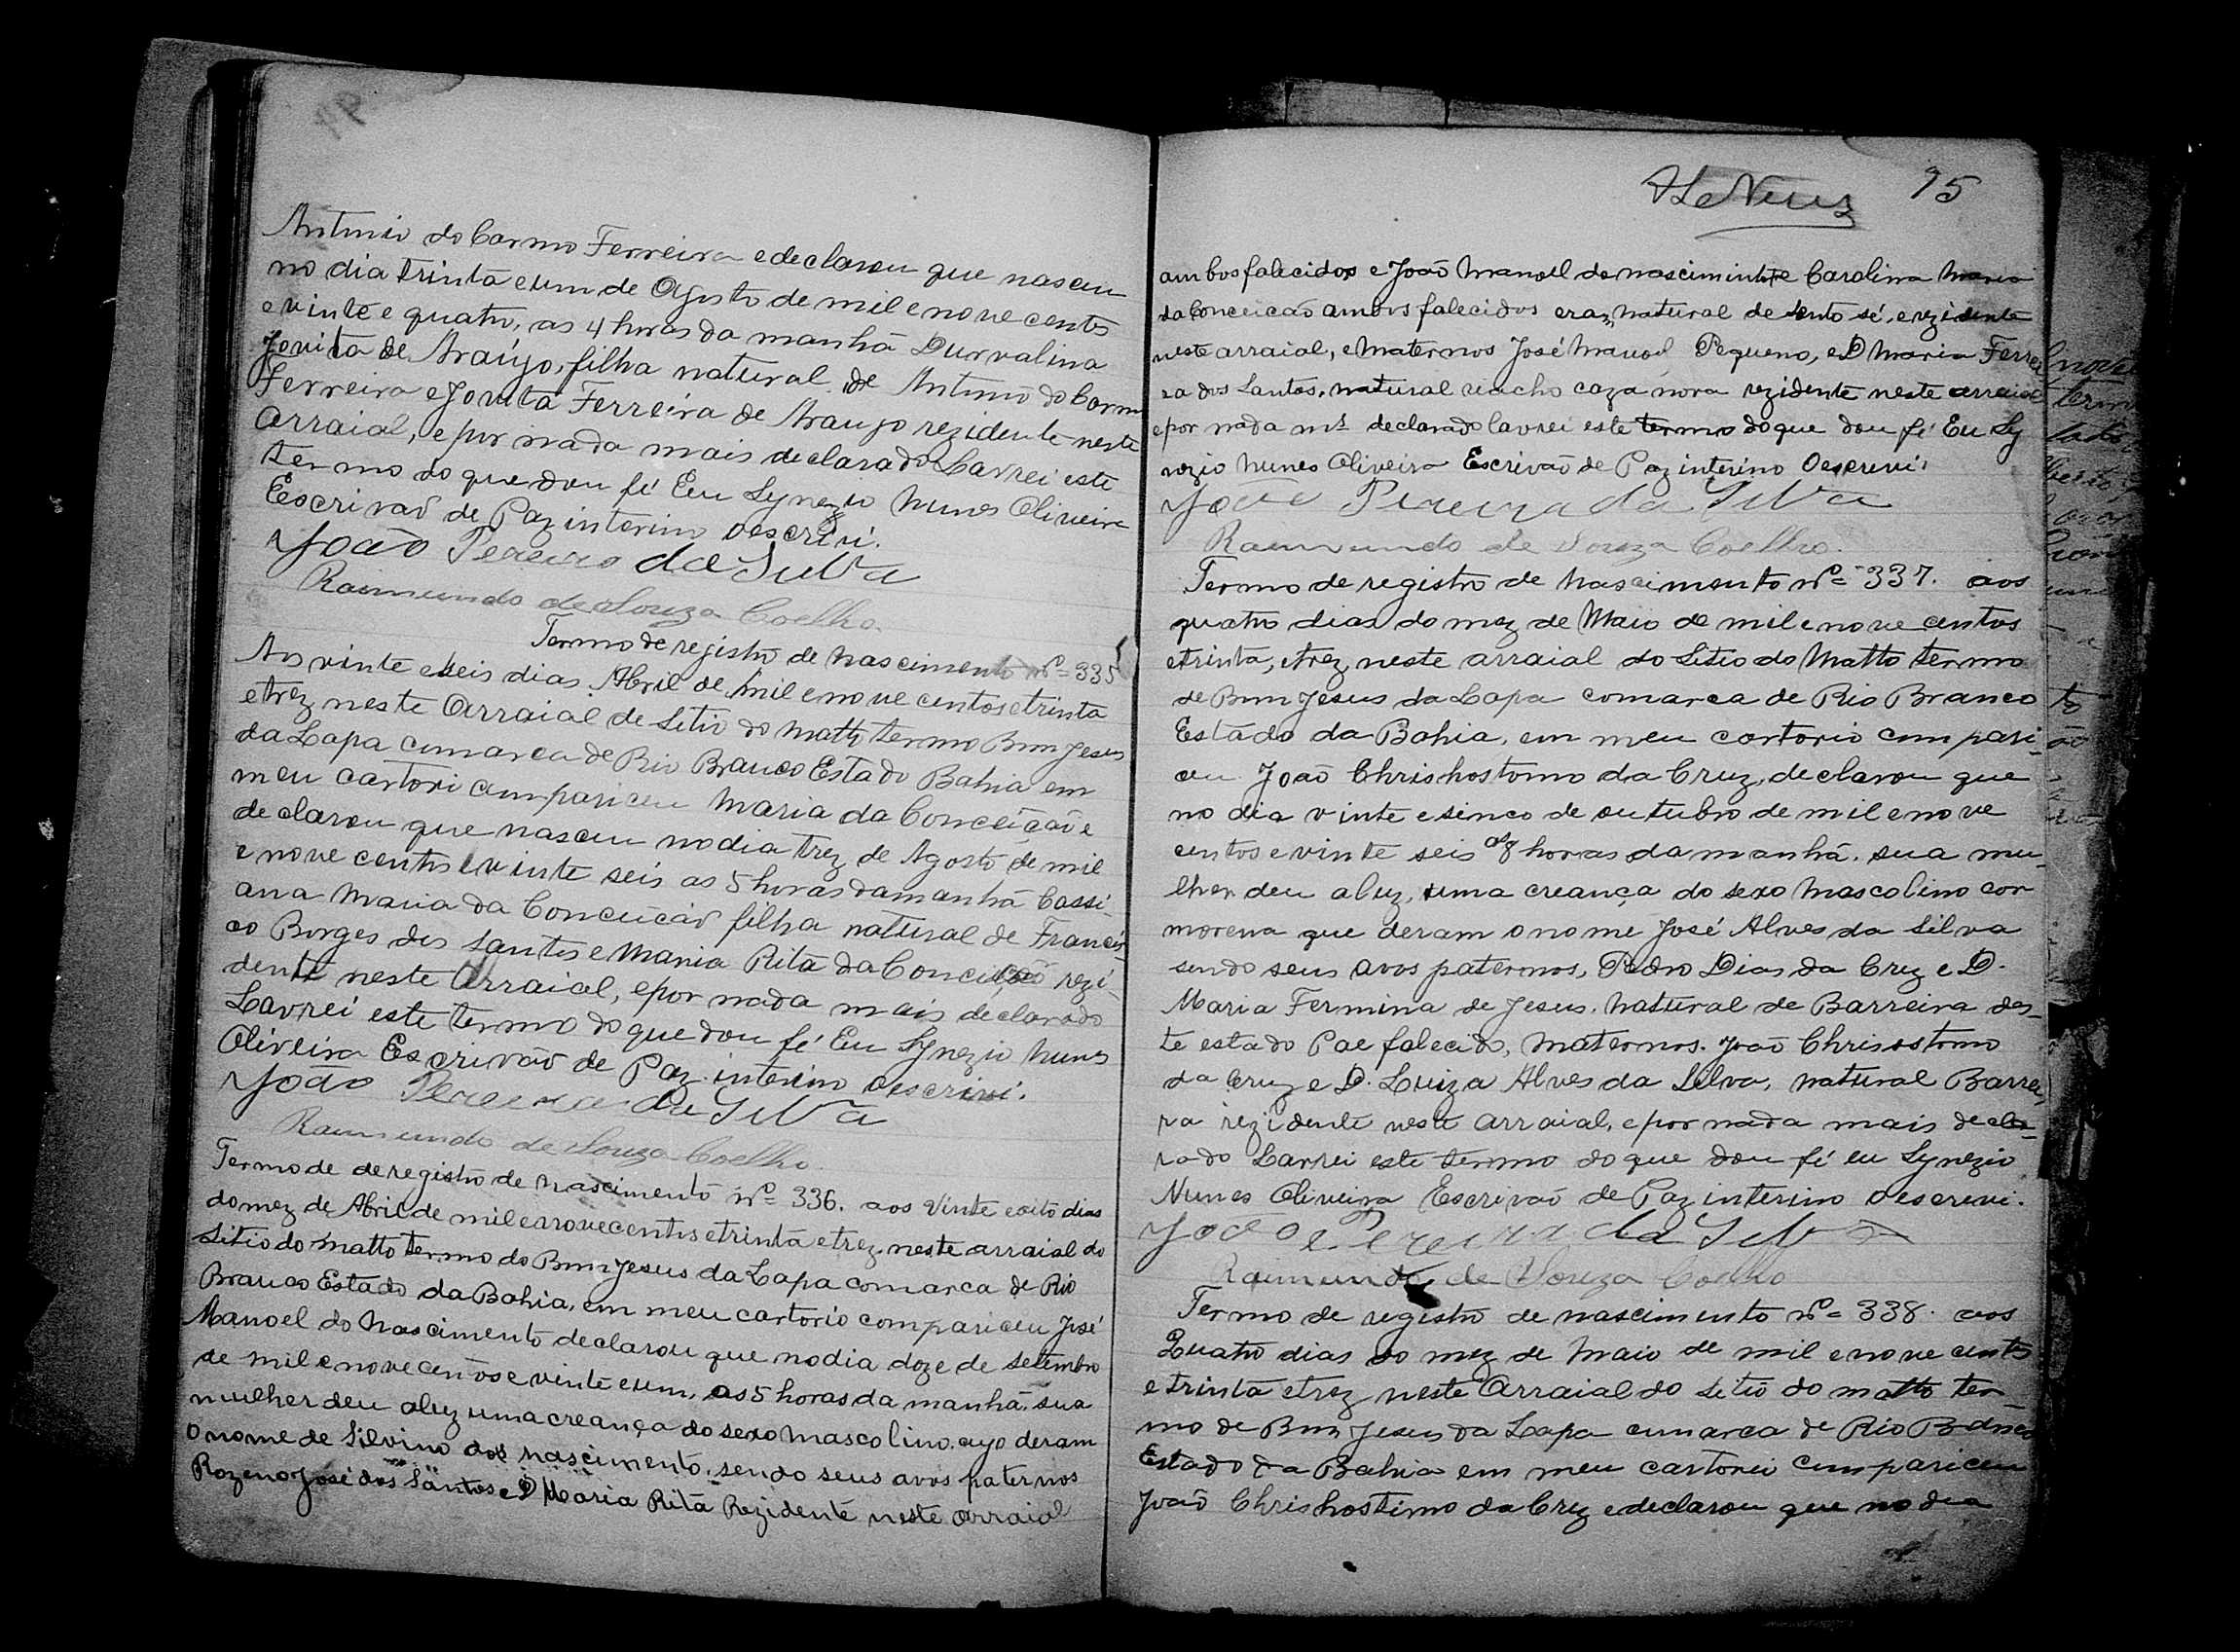 Antonio do Carmo Ferreira e declarou que nasceu
no dia trinta e um de Agosto de mil e nove centos
e vinte e quatro, as 4 horas da manhã Durvalina
Jovita de Araújo, filha natural de Antonio do Carmo
Ferreira e Jovita Ferreira de Araujo rezidente neste
arraial, e por nada mais declarado Lavrei este
termo do que dou fé Eu Synezio Nunes Oliveira
Escrivaõ de Paz interino o escrivi.
João Pereira da Silva
Raimundo de Souza Coelho.
Termo de registro de nascimento nº = 335
Aos vinte e seis dias Abril de mil e nove centos e trinta
e trez neste Arraial de Sitio do Matto termo Bom Jesus
da Lapa comarca de Rio Branco Estado Bahia em
meu cartori compariceu Maria da Conceiçaõ e
declarou que nasceu no dia trez de Agosto de mil
e nove centos e vinte seis as 5 horas da manhã Cassi-
ana Maria da Conceiçaõ filha natural de Francis-
co Borges dos Santos e Maria Rita da Conceiçaõ rezi-
dente neste Arraial, e por nada mais declarado
Lavrei este termo do que dou fé Eu Synezio Nunes
Oliveira Escrivaõ de Paz interino o escrivi.
João Pereira da Silva
Raimundo de Souza Coelho.
Termo de de registro de nascimento nº = 336. aos vinte e oito dias
do mez de Abril de mil e novecentos e trinta e trez, neste arraial do
Sitio do matto termo do Bom Jesus da Lapa comarca de Rio
Branco Estado da Bahia, em meu cartorio compariceu José
Manoel do Nascimento declarou que no dia doze de Setembro
de mil e novecentos e vinte e um, as 5 horas da manhã, sua
mulher deu aluz uma creança do sexo mascolino, cujo deram
O nome de Silvino dos nascimento, sendo seus avos paternos
Rozeno José dos Santos e D Maria Rita Rezidente neste arraial
95
ambos falecidos e João Manoel do nascimento e Carolina Maria
da Conceicaõ ambos falecidos eram natural de sento sé, e rezidente
neste arraial, e maternos José Manoel Pequeno, e D Maria Ferrei
ra dos Santos, natural riacho caza nova rezidente neste arraial
e por nada ms declarado lavrei este termo do que dou fé Eu Sy
nezio Nunes Oliveira Escrivaõ de Paz interino O escrevi.
João Pereira da Silva
Raimundo de Souza Coelho.
Termo de registro de nascimento nº = 337. aos
quatro dias do mez de Maio de mil e nove centos
e trinta, e trez neste arraial do Sitio do Matto termo
de Bom Jesus da Lapa comarca de Rio Branco
Estado da Bahia, em meu cartorio compari-
ceu João Chrishostomo da Cruz, declarou que
no dia vinte e sinco de outubro de mil e nove
centos e vinte seis as 8 horas da manhã. sua mu-
lher deu aluz, uma creança do sexo mascolino cor
morena que deram o nome José Alves da Silva
sendo seus avos paternos, Pedro Dias da Cruz e D.
Maria Fermina de Jesus, natural de Barreira des-
te estado Pae falecido, maternos. João Chrisostomo
da Cruz e D. Luiza Alves da Silva, natural Barrei,
ra rezidente neste arraial, e por nada mais decla-
rado Lavrei este termo do que dou fé eu Synezio
Nunes Oliveira Escrivaõ de Paz interino o escrevi.
João Pereira da Silva
Raimundo de Souza Coelho
Termo de registro de nascimento nº = 338. aos
Quatro dias do mez de Maio de mil e nove cents
e trinta e trez neste Arraial do Sitio do matto ter-
mo de Bom Jesus da Lapa comarca de Rio Branco
Estado da Bahia em meu cartorei compariceu
João Chrishostimo da Cruz e declarou que no dia